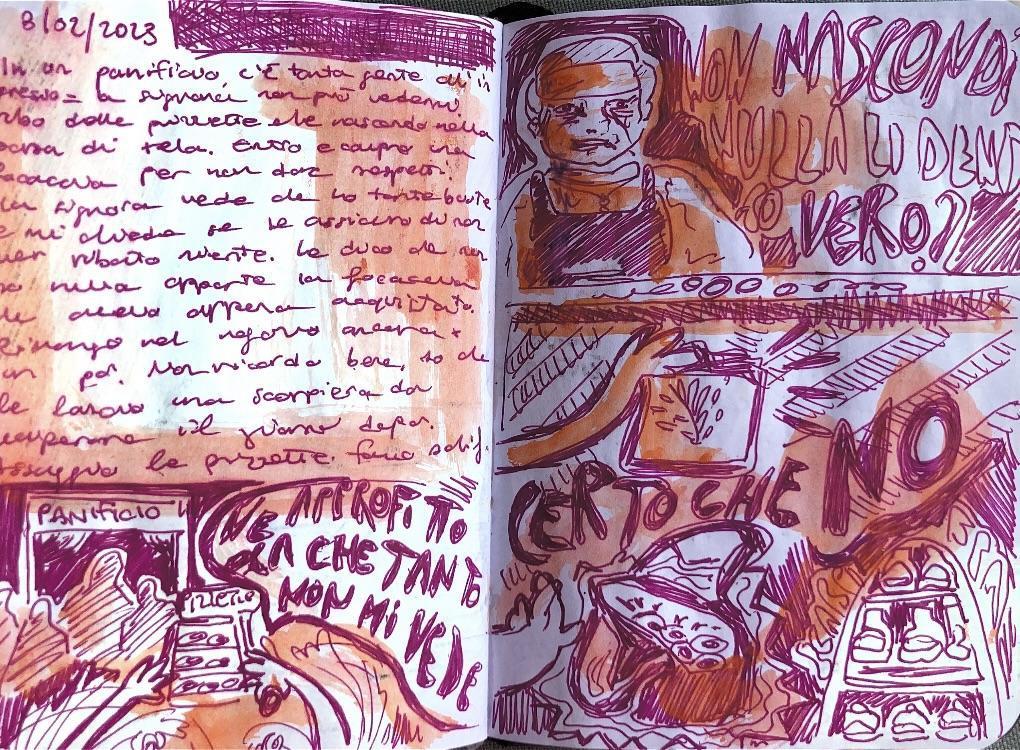 8/02/2023
In un panificio c'è tanta gente
la signora non può vedermi
rubo delle pizzette e le nascondo nella
borsa di tela. Entro e compro una
per non dare sospetti.
signora vede che ho tante buste
e mi chiede se le assicuro di non
aver rubato niente. Le dico che non
ho nulla apparte la focaccina
che avevo appena acquistato.
Rimango nel negozio ancora x
un po'. Non ricordo bene, so che
le lancio una
il giorno dopo.
Assaggio le pizzette. Fanno schifo.
PANIFICIO
NE APPROFITTO
ORA CHE TANTO
NON MI VEDE
NON NASCONDI
NULLA LÌ DENTRO
VERO?
CERTO CHE NO